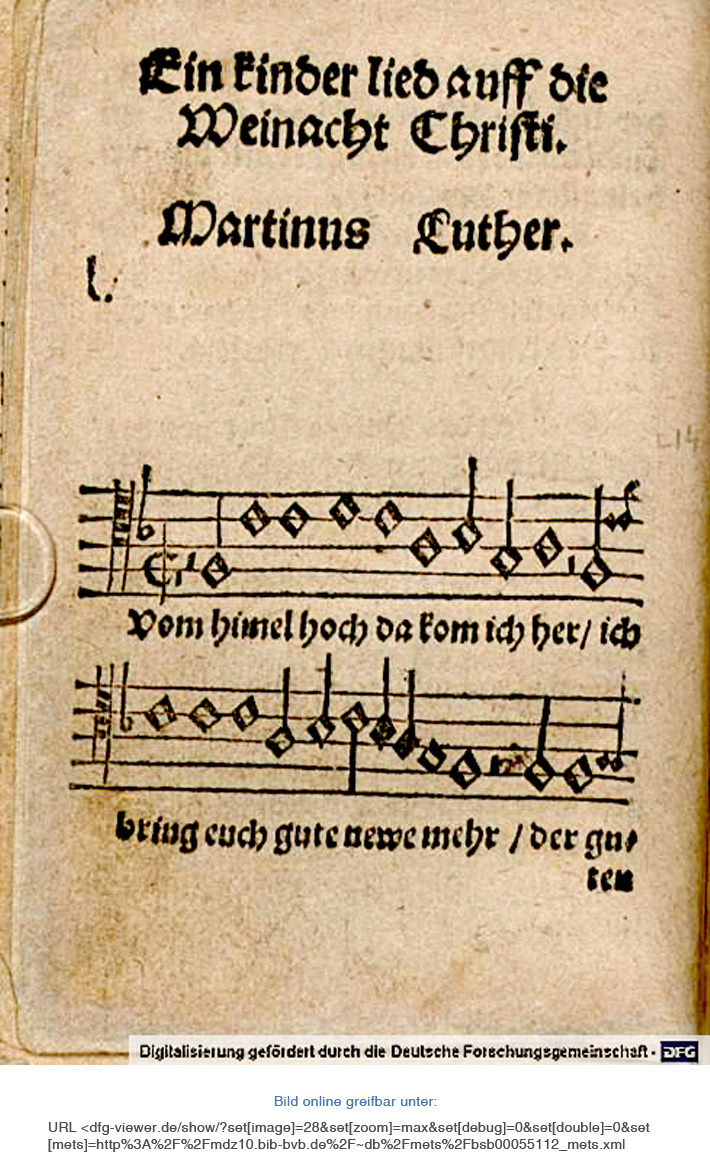 Ein kinder lied auff die
Weinacht Christi.
Martinus Luther.
l.
L14
Vom himel hoch da kom ich her/ ich
bring euch gute newe mehr / der gu⸗
ten
Digitalisierung gefördert durch die Deutsche Forschungsgemeinschaft - DFG
Bild online greifbar unter:
URL <dfg-viewer.de/show/?set[image]=28&set[zoom]=max&set[debug]=0&set[double]=0&set
[mets]=http%3A%2F%2Fmdz10.bib-bvb.de%2F~db%2Fmets%2Fbsb00055112_mets.xml